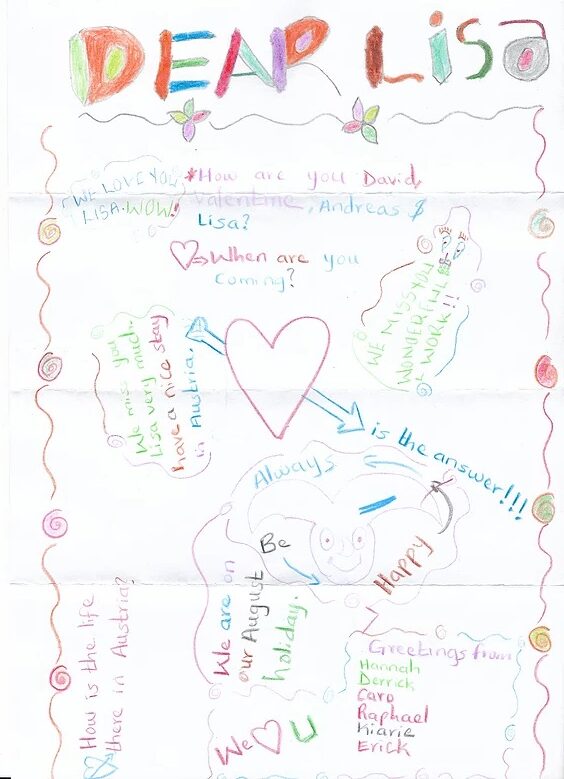 DEAR LISA
WE LOVE YOU
LISA. WOW!
*How are you David,
Valentine, Andreas $
Lisa?
When are you
coming?
WE MISS YOU
WONDERFUL
WORK!!
We miss you
Lisa very much.
have a nice stay
in Austria.
is the answer!!!
Always
Be
Happy
We are on
our August
holiday.
How is the life
there in Austria?
Greetings from
Hannah
Derrick
Caro
Raphael
Kiarie
Erick
We U